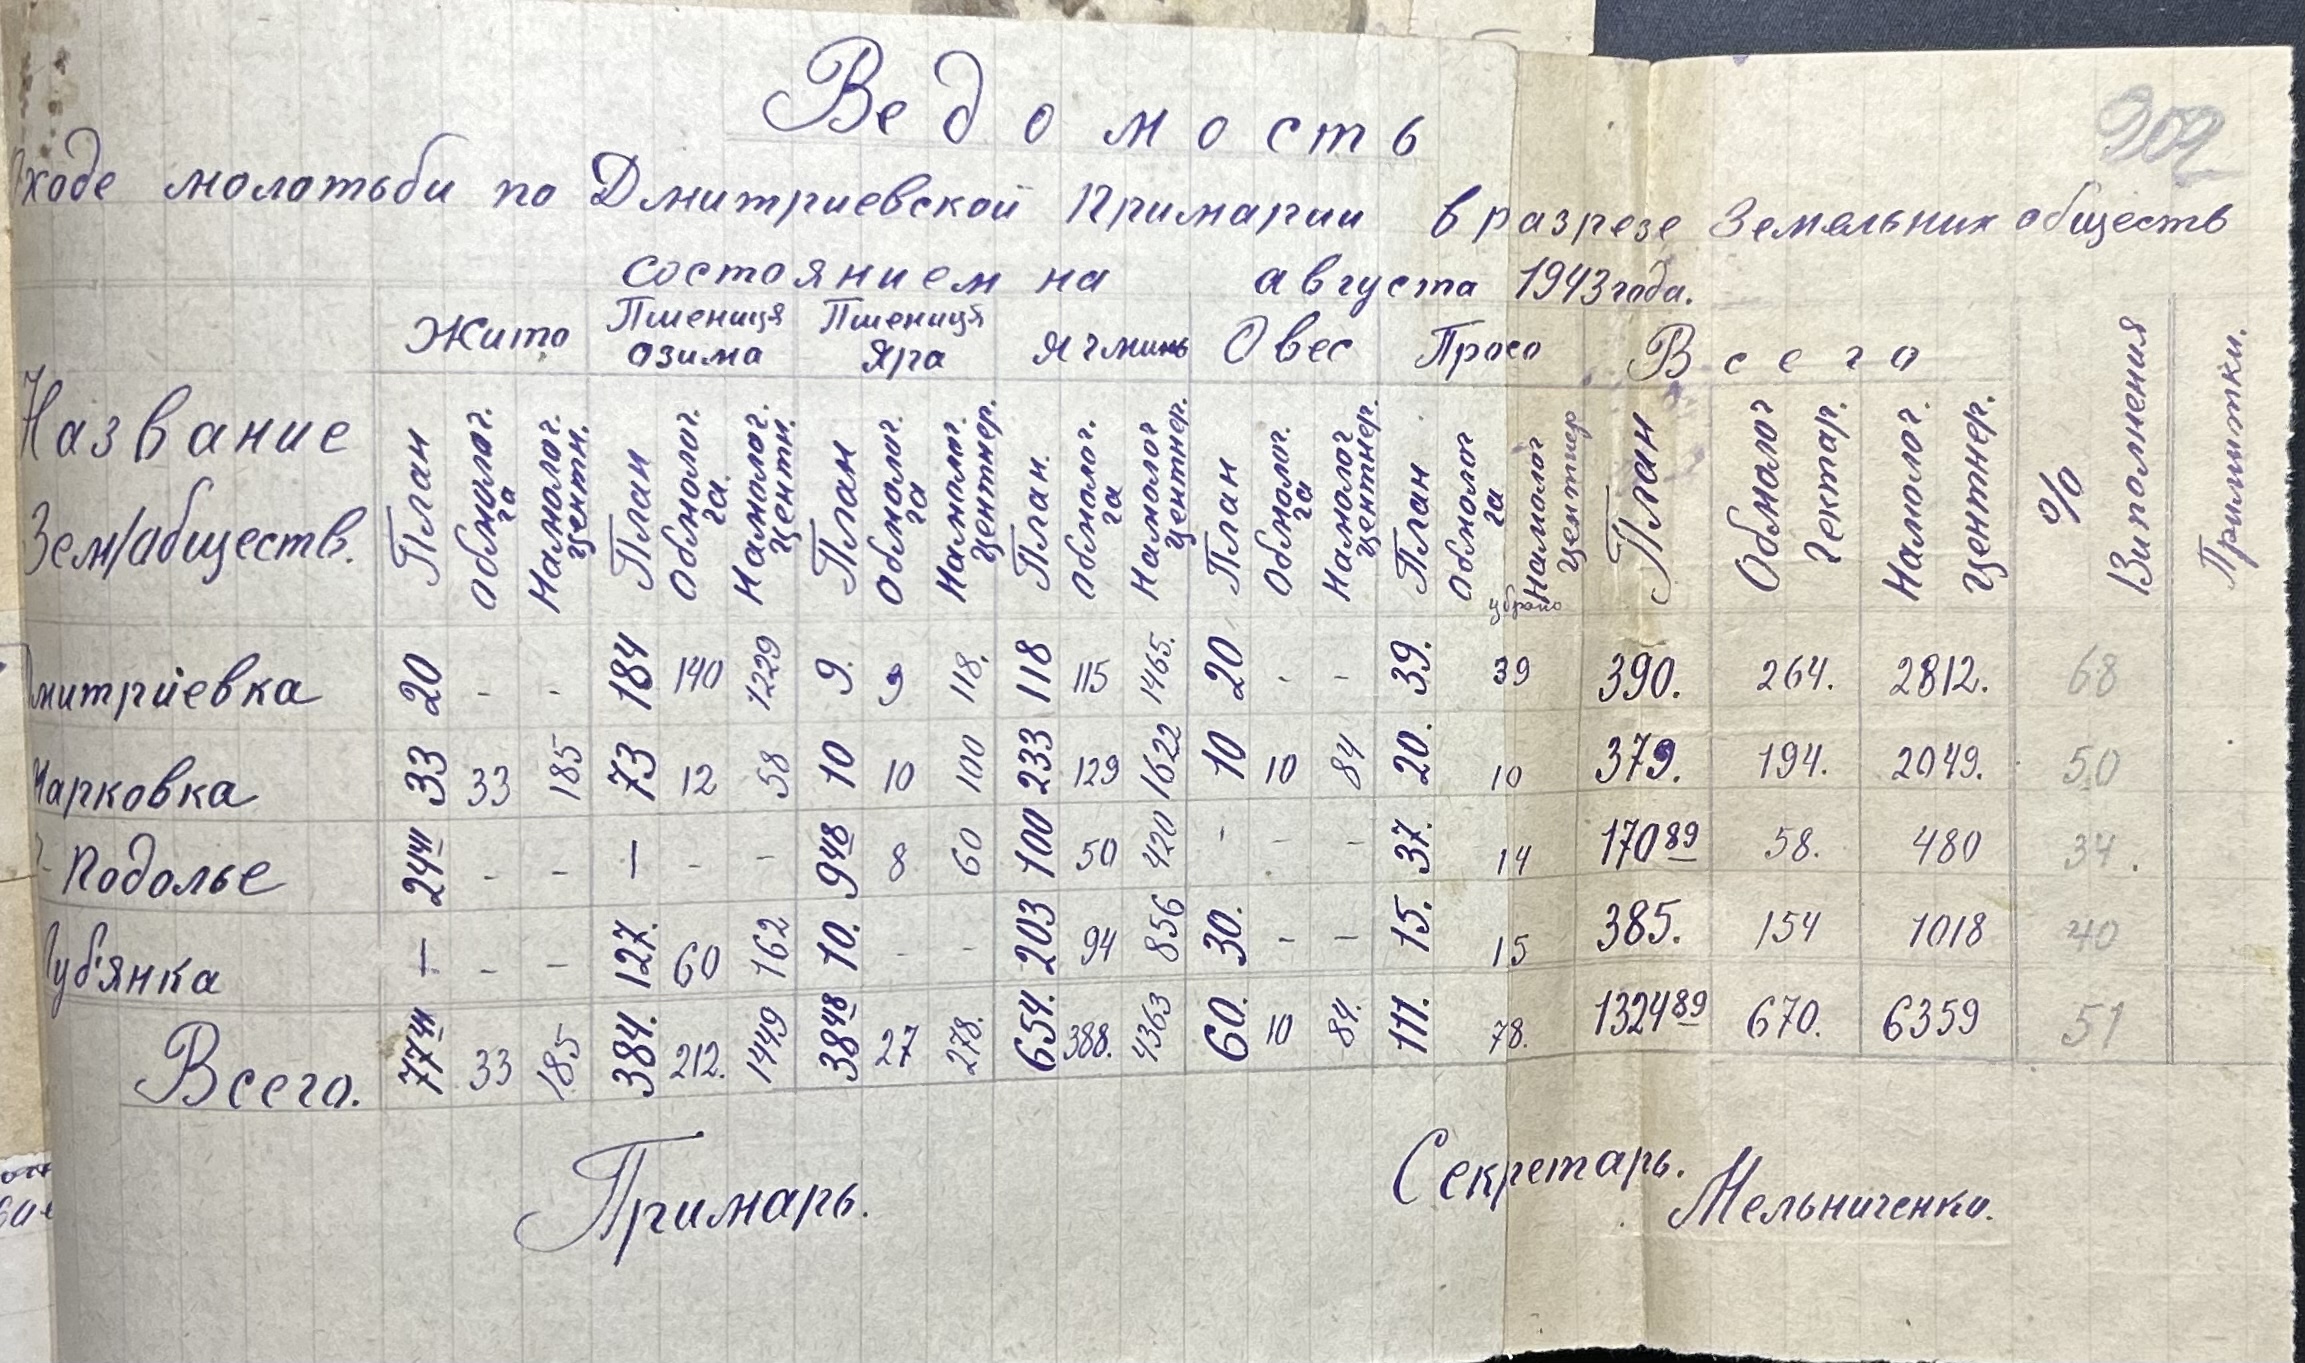 Ведомость
902
Оходе молотьби по Дмитриевской Примарии в разрезе Земельних обществ
состоянием на августа 1943 года.
Название Зем/обществ. Жито Пшениця озима Пшениця Яра Ячминь Овес Просо Всего % Виполнения Примитки.
План Обмолог. га Намолог. центн. План Обмолог. га. Намолог. центн. План Обмолог. га Намолог. центнер. План. Обмолог. га Намолог центнер. План Обмолог. га Намолог центнер. План Обмолог га убрано Намолог центнер План Обмолог Гектар. Намолог. центнер.
Дмитрйевка 20 - - 184 140 1229 9. 9 118. 118 115 1465. 20 - - 39. 39 390. 264. 2812. 68
Марковка 33 33 185 73 12 58 10 10 100 233 129 1622 10 10 84 20. 10 379. 194. 2049. 50
Подолье 24 41 - - - - - 9 48 8 60 100 50 420 - - - 37. 14 170 89 58. 480 34.
Луб'янка - - - 127. 60 162 10. - - 203 94 856 30. - - 15. 15 385. 154 1018 40
Всего. 77 41 33 185 384. 212. 1449 38 48 27 278. 654. 388. 4363 60. 10 84. 111. 78. 1324 89 670. 6359 51
Примарь. Секретарь. Мельниченко.